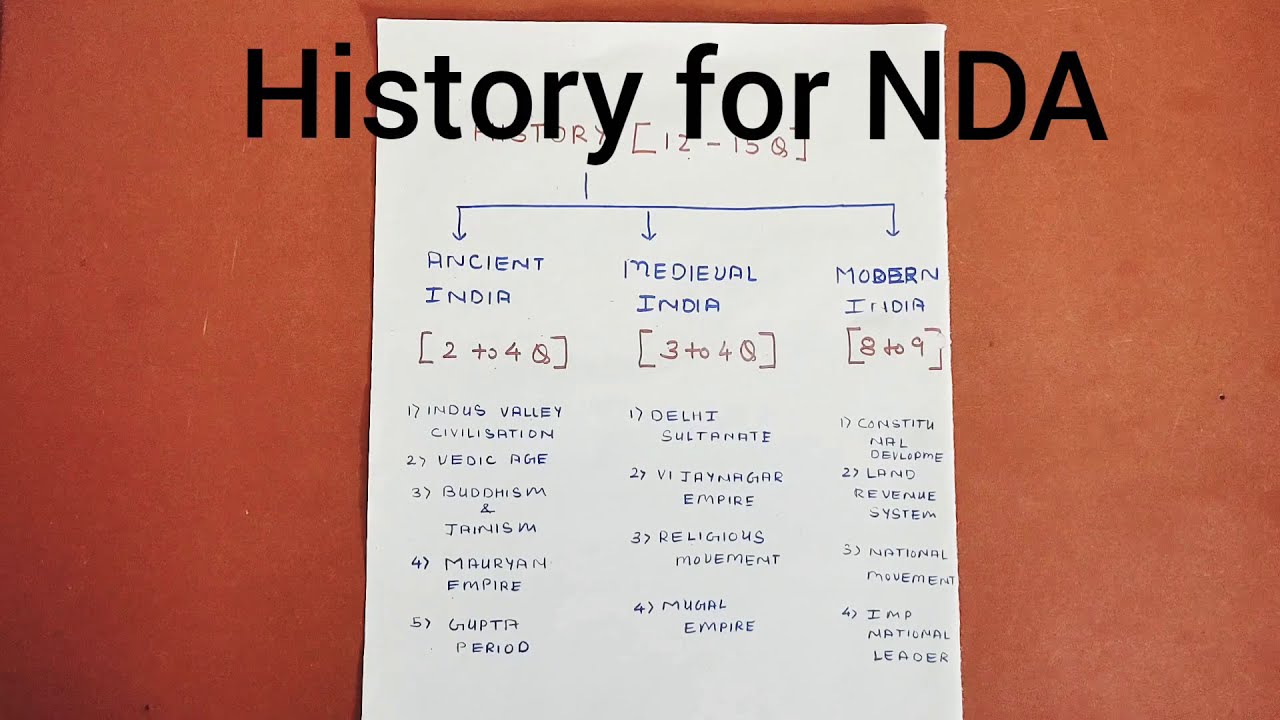 History for NDA
HISTORY [12-15Q]
ANCIENT
INDIA
[2 to 4 Q]
1) INDUS VALLEY
CIVILISATION
2) VEDIC AGE
3) BUDDHISM
&
JAINISM
4) MAURYAN
EMPIRE
5) GUPTA
PERIOD
MEDIEVAL
INDIA
[3 to 4 Q]
1) DELHI
SULTANATE
2) VIJAYNAGAR
EMPIRE
3) RELIGIOUS
MOVEMENT
4) MUGAL
EMPIRE
MODERN
INDIA
[8 to 9]
1) CONSTITU
NAL
DEVLOPME
2) LAND
REVENUE
SYSTEM
3) NATIONAL
MOVEMENT
4) IMP
NATIONAL
LEADER